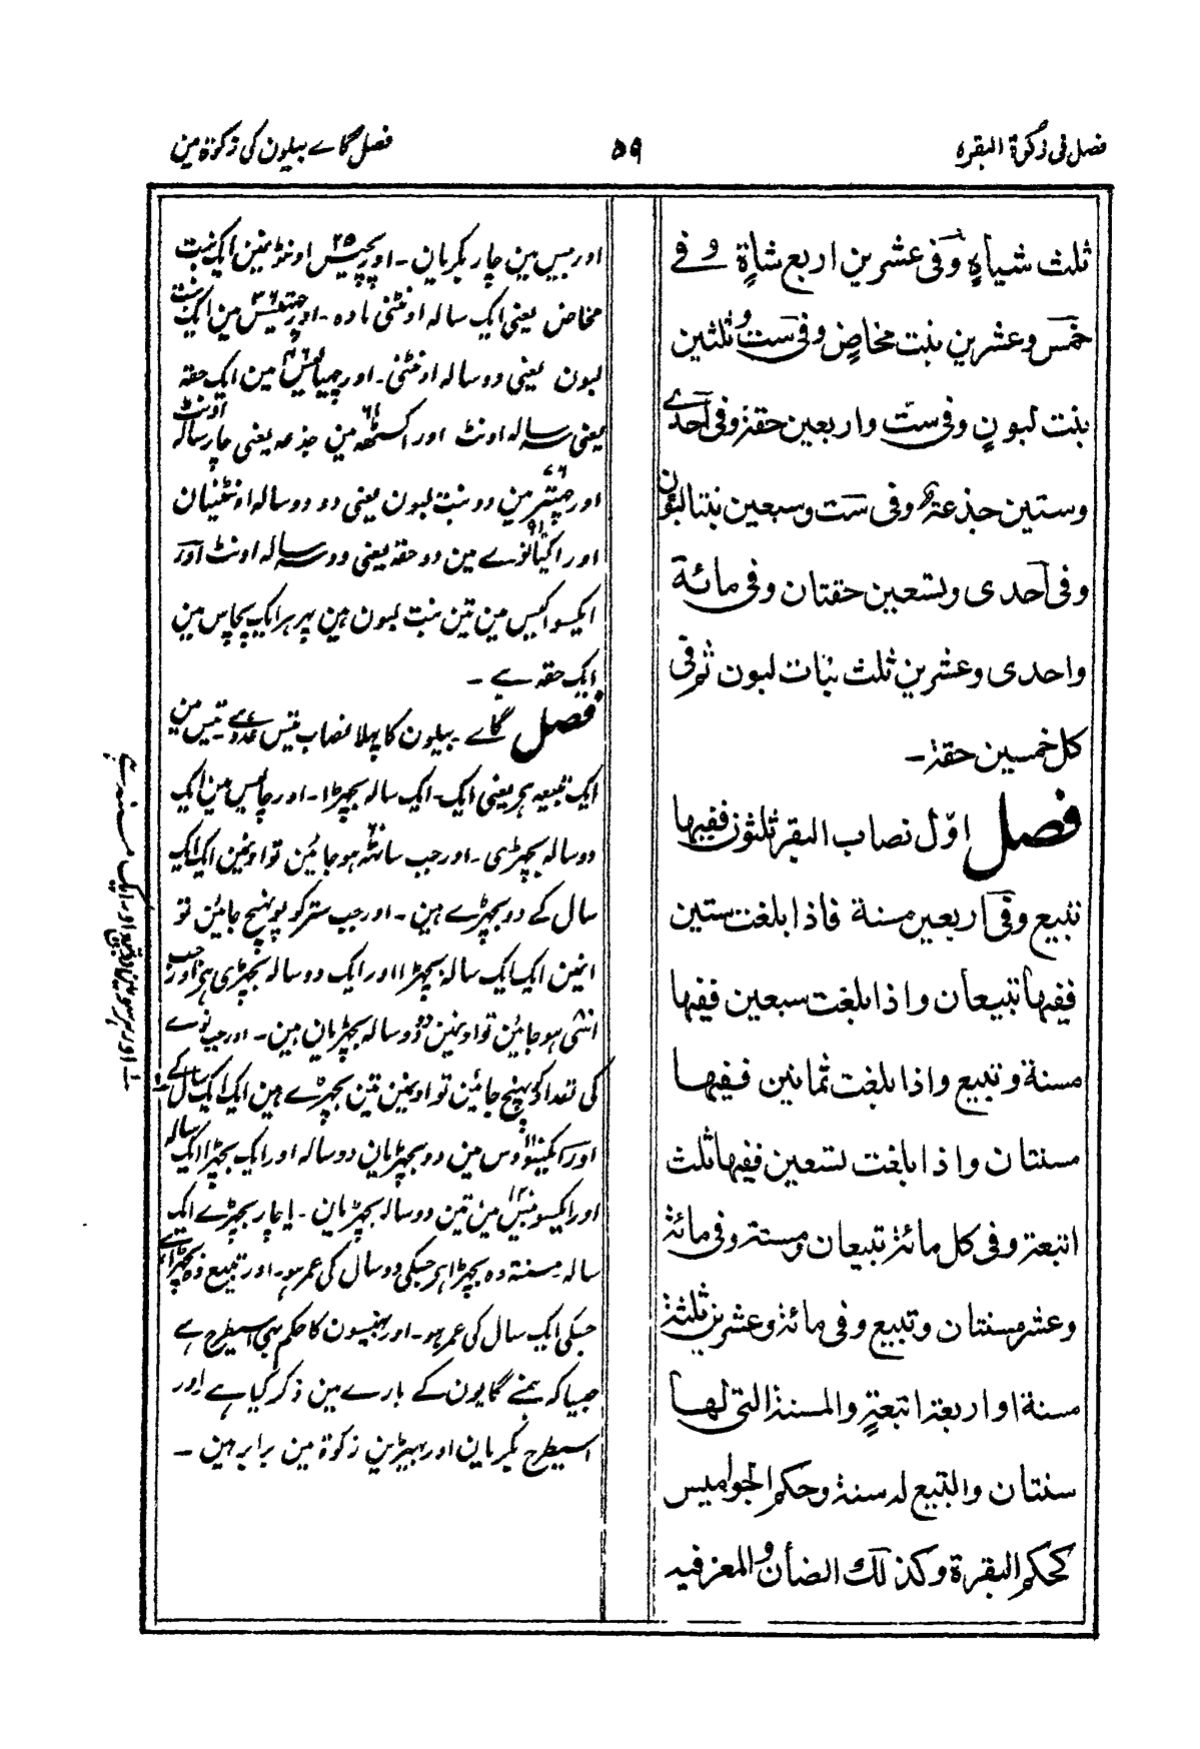 فصل فی زکوة البقره
۵۹
فصل گاے بیلون کی زکوة مین
ثلث شیاہٍ وفی عشرین اربع شاةٍ وفے
خمس وعشرین بنت مخاضٍ وفی ست وثلثین
بنت لبونٍ وفی ستّ واربعین حقة وفی احدے
وستین جذعة وفی ست وسبعین بنتا لبون
وفی احدی وتسعین حقتان وفی مائة
واحدی وعشرین ثلث بنات لبون ثم فی
کل خمسین حقة۔
فصل اوّل نصاب البقر ثلثون ففیها
تبیع وفی اربعین مسنة فاذا بلغت ستین
ففیها تبیعان واذا بلغت سبعین ففیها
مسنة وتبیع واذا بلغت ثمانین ففیها
مسنتان واذا بلغت تسعین ففیها ثلث
اتبعة وفی کل مائة تبیعان ومسنة وفی مائة
وعشر مسنتان وتبیع وفی مائة وعشرین ثلثة
مسنة او اربعة اتبعةٍ والمسنة التی لها
سنتان والتبیع له سنة وحکم الجوامیس
کحکم البقرة وکذلك الضأن والمعز فیه
اور بیس مین چار بکریان۔ اور پچیس ۲۵ اونٹونمین ایک بنت
مخاض یعنی ایک سالہ اونٹنی مادہ۔ اور چھتیس ۳۶ مین ایک بنت
لبون یعنی دو سالہ اونٹنی۔ اور چھیالیس ۴۶ مین ایک حقہ
یعنی سہ سالہ اونٹ اور اکسٹھ ۶۱ مین جذعہ یعنی چار سالہ اونٹ
اور چھہتر ۷۶ مین دو بنت لبون یعنی دو دو سالہ اونٹنیان
اور اکیانوے ۹۱ مین دو حقہ یعنی دو سہ سالہ اونٹ اور
ایکسو اکیس مین تین بنت لبون ہین پھر ہر ایک پچاس مین
ایک حقہ ہے۔
فصل گاے بیلون کا پہلا نصاب تیس عدد ہے تیس مین
ایک تبیعہ ہے یعنی ایک۔ ایک سالہ بچھڑا۔ اور چالیس مین ایک
دو سالہ بچھڑی۔ اور جب ساٹھ ہو جائین تو اونمین ایک ایک
سال کے دو بچھڑے ہین۔ اور جب ستر کو پہنچ جائین تو
انمین ایک ایک سالہ بچھڑا اور ایک دو سالہ بچھڑی ہے اور جب
اسّی ہو جائین تو اونمین دو دو سالہ بچھڑیان ہین۔ اور جب نوے
کی تعداد کو پہنچ جائین تو اونمین تین بچھڑے ہین ایک ایک سال کے
اور ایکسو دس مین دو بچھڑیان دو سالہ اور ایک بچھڑا ایک سالہ
اور ایکسو بیس مین تین دو سالہ بچھڑیان۔ یا چار بچھڑے ایک
سالہ مسنة وہ بچھڑا ہے جسکی دو سال کی عمر ہو۔ اور تبیع وہ بچھڑا ہے
جسکی ایک سال کی عمر ہو۔ اور بھینسون کا حکم بھی اسیطرح ہے
جیسا کہ ہمنے گایون کے بارے مین ذکر کیا ہے اور
اسیطرح بکریان اور بھیڑین زکوة مین برابر ہین۔
اور ہر سو مین دو تبیع اور ایک مسنہ ہے